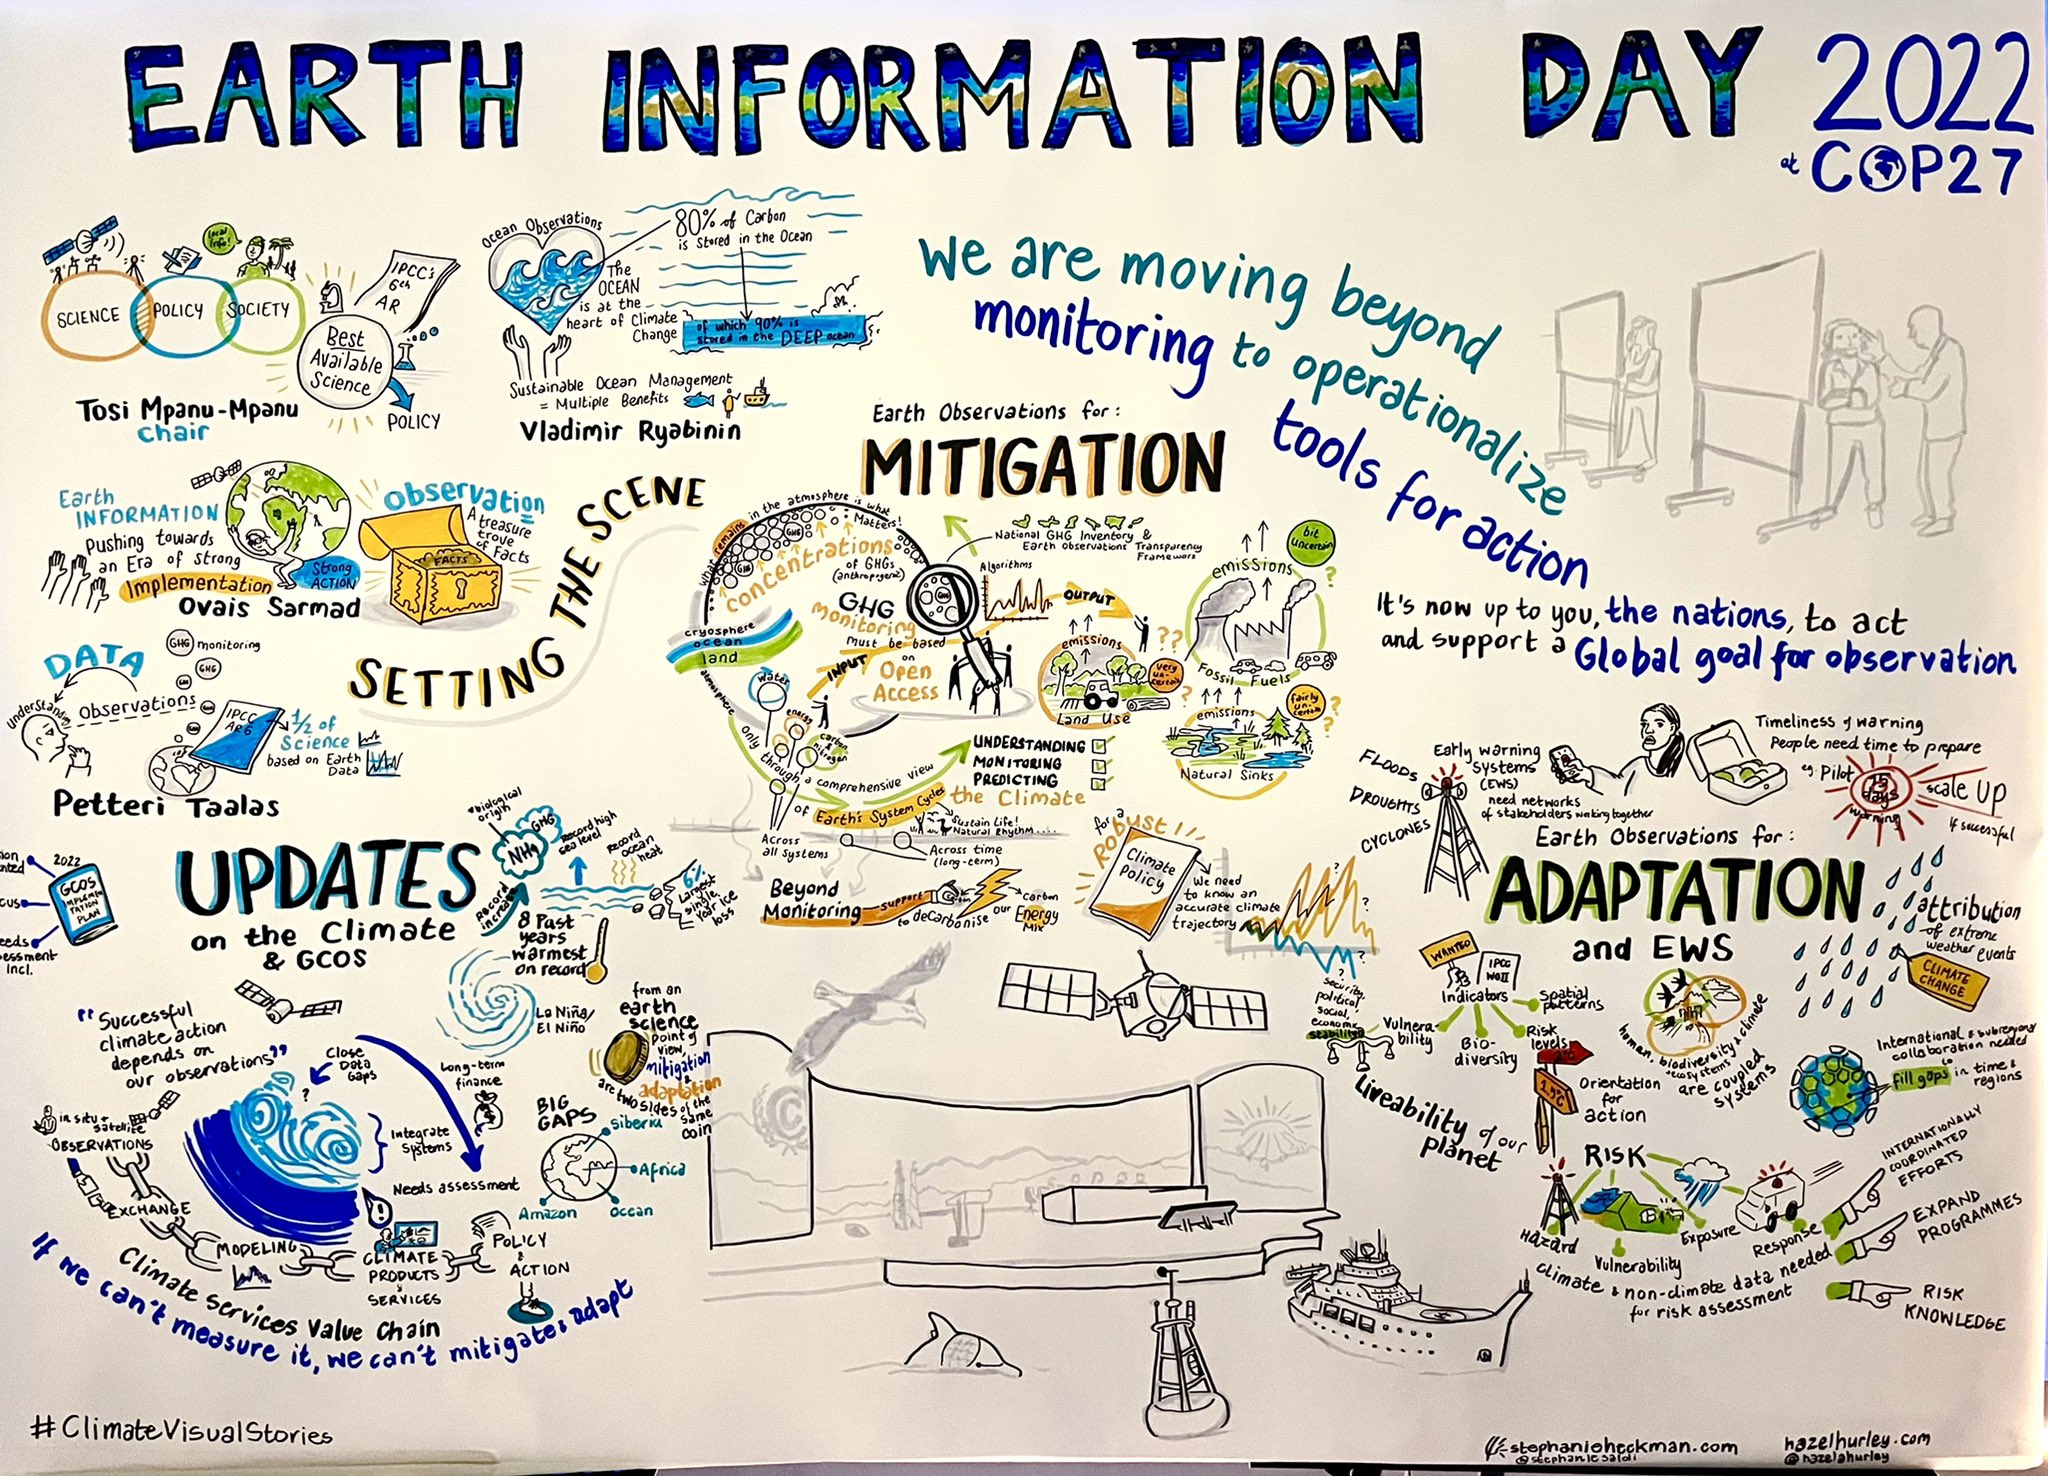 EARTH INFORMATION DAY 2022
at COP27
SCIENCE
POLICY
SOCIETY
local info!
IPCC's
6th
AR
Best
Available
Science
POLICY
Tosi Mpanu-Mpanu
Chair
Ocean Observations
The
OCEAN
is at the
heart of Climate
Change
80% of Carbon
is stored in the Ocean
of which 90% is
stored in the DEEP ocean
Sustainable Ocean Management
= Multiple Benefits
Vladimir Ryabinin
We are moving beyond
monitoring to operationalize
tools for action
It's now up to you, the nations, to act
and support a Global goal for observation
Earth
INFORMATION
pushing towards
an Era of Strong
Implementation
Strong
ACTION
Ovais Sarmad
Observation =
A treasure
trove
of Facts
FACTS
SETTING THE SCENE
DATA
GHG monitoring
GHG
Understanding
Observations
IPCC
AR6
1/2 of
Science
based on Earth
Data
Petteri Taalas
Earth Observations for:
MITIGATION
what remains in the atmosphere is what Matters!
concentrations
of GHGs
(anthropogenic)
GHG
monitoring
must be based
on
Open
Access
GHG
National GHG Inventory &
Earth observations Transparency
Framework
Algorithms
INPUT
OUTPUT
cryosphere
ocean
land
atmosphere
water
energy
carbon &
nitrogen
emissions
Land Use
very
un-
certain
??
emissions
Fossil Fuels
bit
uncertain
?
emissions
Natural Sinks
fairly
un-
certain
?
Only through a comprehensive view
of Earth's System Cycles
UNDERSTANDING
MONITORING
PREDICTING
the Climate
Sustain Life!
Natural Rhythm....
Across
all systems
Across time
(long-term)
Beyond
Monitoring
support
to decarbonise our Energy
Mix
carbon
for a
Robust
Climate
Policy
We need
to know an
accurate climate
trajectory
?
security,
political,
social,
economic
stability
Liveability of our
planet
UPDATES
on the Climate
& GCOS
2022
GCOS
IMPLEMEN
TATION
PLAN
incl.
biological
origin
NH4
GHG
Record
increase
Record high
sea level
Record
ocean
heat
6%
Largest
single
year ice
loss
8 Past
years
warmest
on record
La Niña/
El Niño
"Successful
climate action
depends on
our observations"
Close
Data
Gaps
?
Integrate
Systems
Needs assessment
Long-term
finance
from an
earth
science
point of
view,
mitigation
&
adaptation
are two sides of the
same
coin
BIG
GAPS
Siberia
Africa
Ocean
Amazon
in situ +
satellite
OBSERVATIONS
EXCHANGE
MODELING
CLIMATE
PRODUCTS &
SERVICES
POLICY
&
ACTION
Climate Services Value Chain
If we can't measure it, we can't mitigate & adapt
FLOODS
DROUGHTS
CYCLONES
Early warning
Systems
(EWS)
need networks
of stakeholders working together
Timeliness of warning
People need time to prepare
eg. Pilot
days
warning
scale up
if successful
Earth Observations for:
ADAPTATION
and EWS
attribution
of extreme
weather events
CLIMATE
CHANGE
WANTED
IPCC
WGII
Indicators
Spatial
patterns
Risk
levels
Bio-
diversity
Vulnera-
bility
1.5°C
Orientation
for
action
human, biodiversity & climate
ecosystems
are coupled
systems
International & subregional
collaboration needed
to
fill gaps in time &
regions
RISK
Hazard
Vulnerability
Exposure
Response
climate & non-climate data needed
for risk assessment
INTERNATIONALLY
COORDINATED
EFFORTS
EXPAND
PROGRAMMES
RISK
KNOWLEDGE
#ClimateVisualStories
stephanieheckman.com
@stephaniesaldi
hazelhurley.com
@hazelahurley